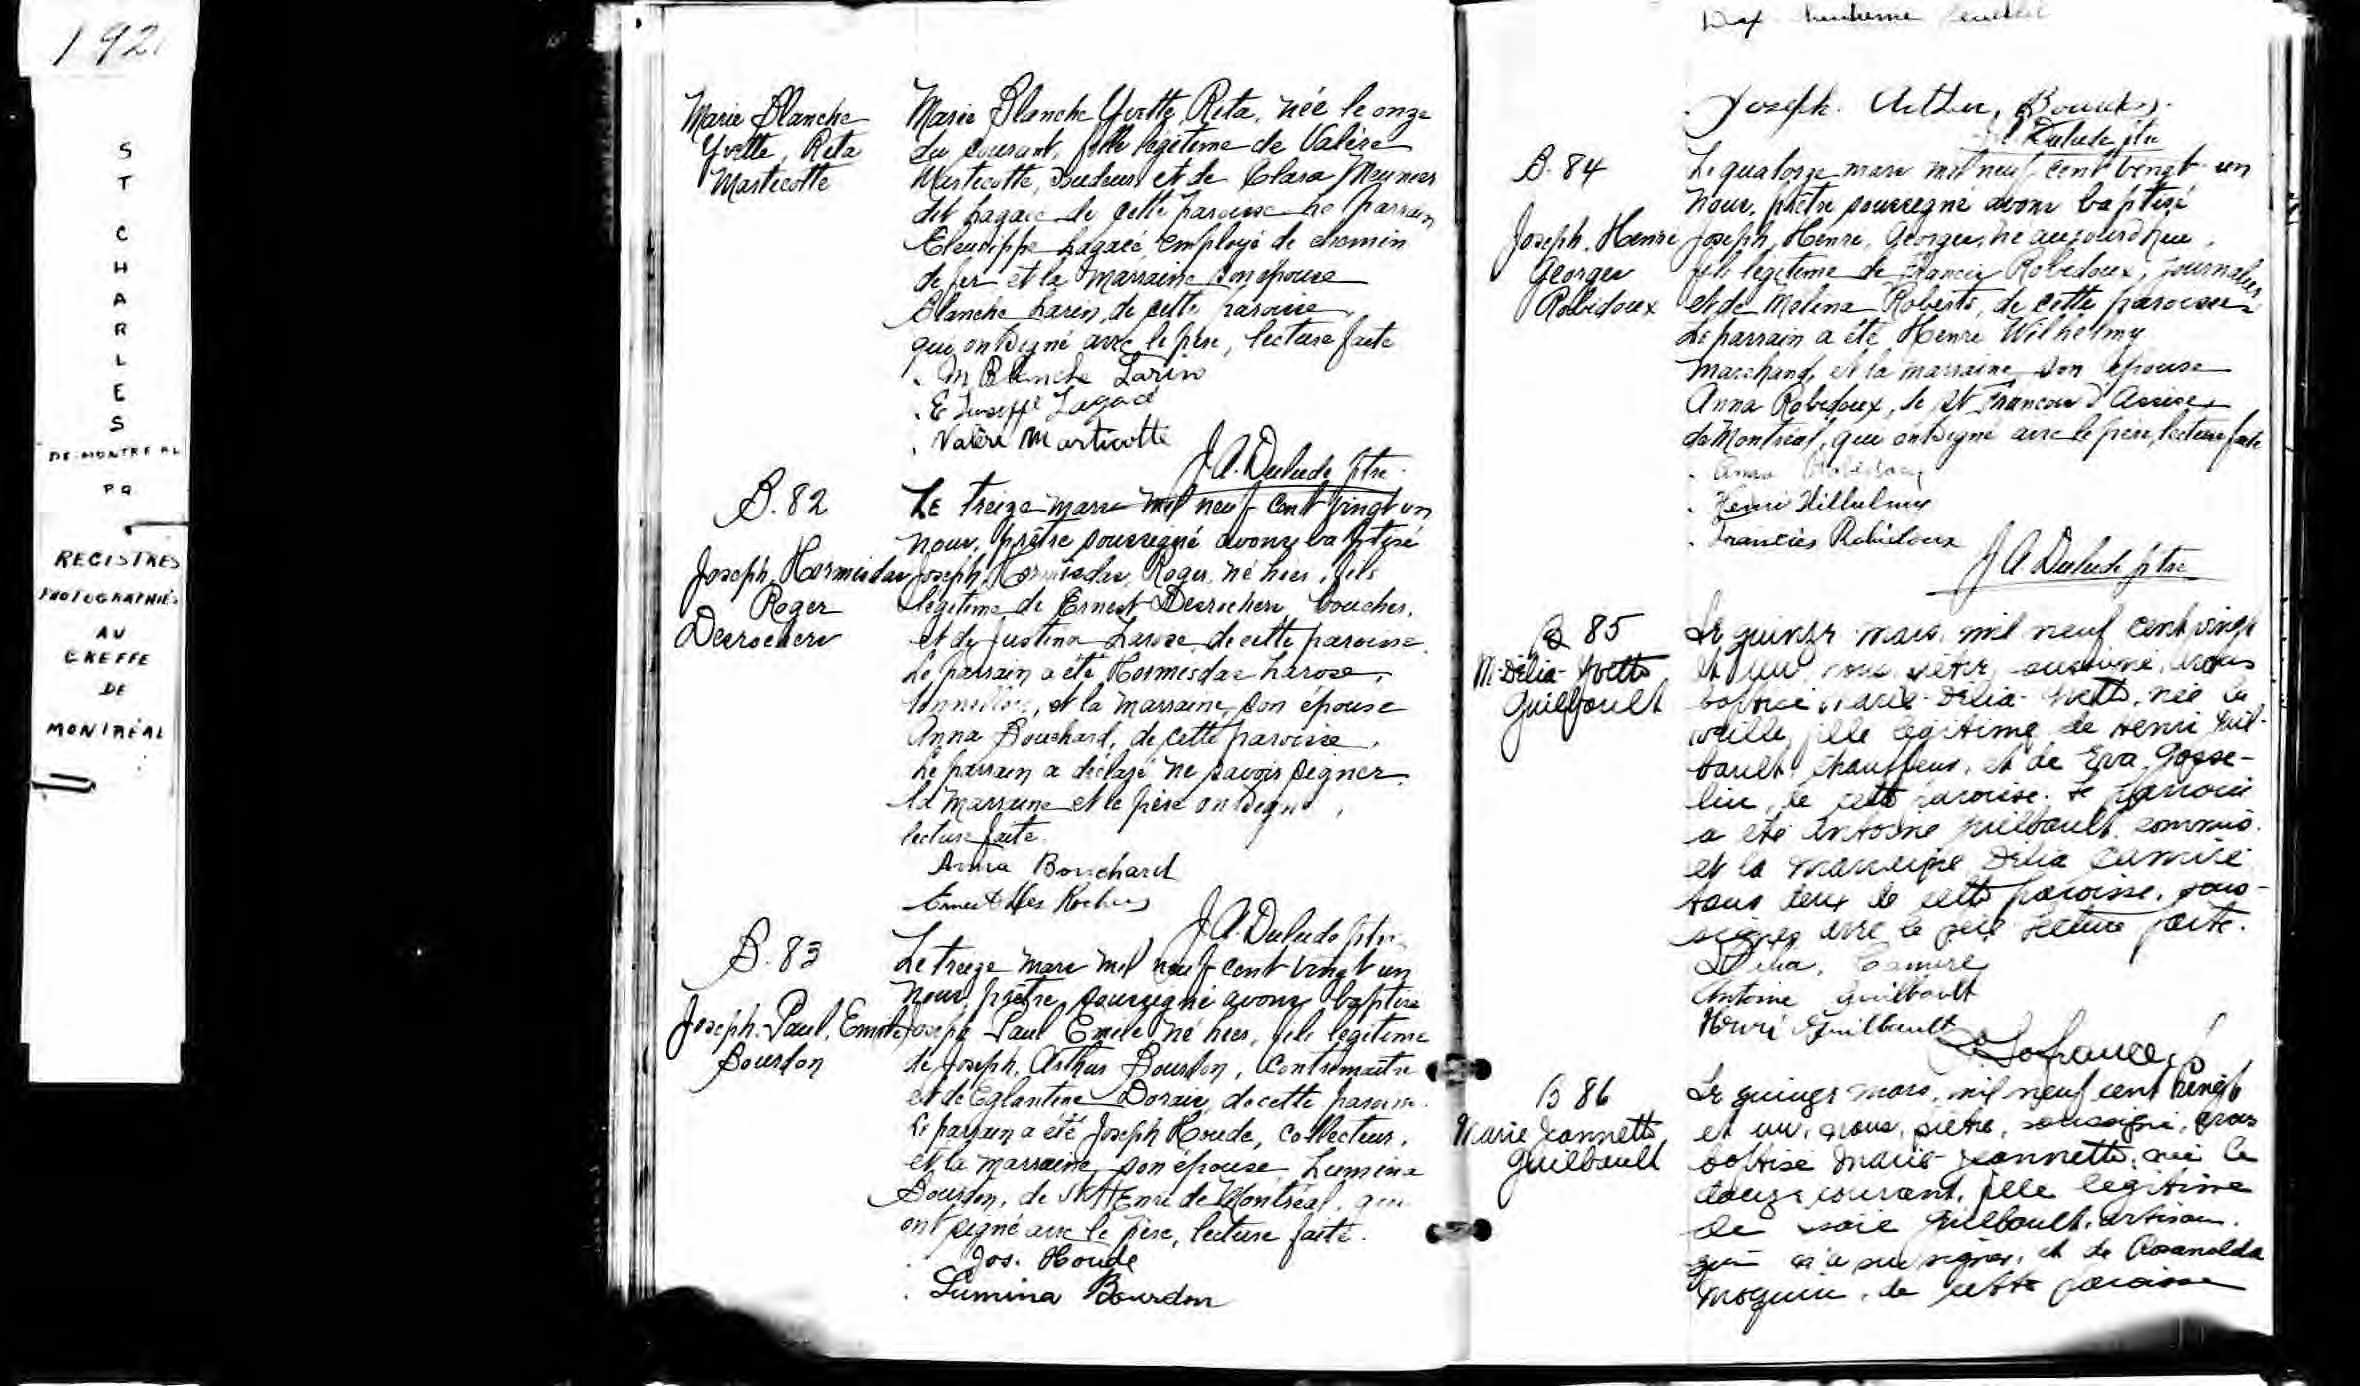 192
S
T
C
H
A
R
L
E
S
DE MONTREAL
PQ
REGISTRES
PHOTOGRAPHIÉS
AU
GREFFE
DE
MONTRÉAL
Marie Blanche
Yvette, Rita
Marticotte
Marie Blanche Yvette, Rita, née le onze
du courant, fille légitime de Valère
Marticotte, soudeur, et de Clara Meunier
dit Lagacé de cette paroisse Le parrain
Eleusippe Lagacé, employé de chemin
de fer et la marraine son épouse
Blanche Larin, de cette paroisse,
qui ont signé avec le père, lecture faite
M Blanche Larin
E Lagacé
Valère Marticotte
J A. Dulude ptre
B. 82
Joseph, Hormisdas
Roger
Desrochers
Le treize mars mil neuf cent vingt un
nous, prêtre soussigné avons baptisé
Joseph, Hormisdas, Roger, né hier, fils
légitime de Ernest Desrochers, boucher,
et de Justina Larose, de cette paroisse.
Le parrain a été Hormisdas Larose,
et la marraine, son épouse
Anna Bouchard, de cette paroisse,
Le parrain a déclaré ne savoir signer.
la marraine et le père ont signé,
lecture faite.
Anna Bouchard
Ernest Des Rochers
J A. Dulude ptre
B. 83
Joseph. Paul, Emile
Bourdon
Le treize mars mil neuf cent vingt un
nous, prêtre, soussigné avons baptisé
Joseph Paul Emile né hier, fils légitime
de Joseph, Arthur Bourdon, contremaître
et de Eglantine Dorais, de cette paroisse.
Le parrain a été Joseph Houde, collecteur,
et la marraine, son épouse, Lumina
Bourdon, de St Henri de Montréal, qui
ont signé avec le père, lecture faite.
Jos. Houde
Lumina Bourdon
Joseph. Arthur, Bourdon.
Dulude ptre
B. 84
Joseph. Henri
Georges
Robidoux
Le quatorze mars mil neuf cent vingt un
nous, prêtre soussigné avons baptisé
Joseph, Henri, Georges, né aujourd'hui,
fils légitime de Francis Robidoux, journalier
et de Melina Roberts, de cette paroisse
Le parrain a été Henri Wilhelmy
marchand, et la marraine, son épouse
Anna Robidoux, de St François d'Assise,
de Montréal, qui ont signé avec le père, lecture faite
Anna Robidoux
Henri Wilhelmy
Francis Robidoux
J A Dulude ptre
B 85
M-Délia-Yvette
Guilbault
Le quinze mars, mil neuf cent vingt
et un, nous, prêtre, soussigné, avons
baptisé Marie-Délia-Yvette, née la
veille, fille légitime de Henri Guil-
bault, chauffeur, et de Eva Gosse-
lin, de cette paroisse. Le parrain
a été Antoine Guilbault, commis.
et la marraine Délia Camiré
tous deux de cette paroisse, sous-
signés avec le père Lecture faite.
Délia, Camiré
Antoine Guilbault
Henri Guilbault
B 86
Marie Jeannette
Guilbault
Le quinze mars, mil neuf cent vingt
et un, nous, prêtre, soussigné, avons
baptisé Marie-Jeannette, née le
douze courant, fille légitime
de Guilbault, artisan.
qui n'a pu signer, et de Rosanalda
Moquin, de cette paroisse